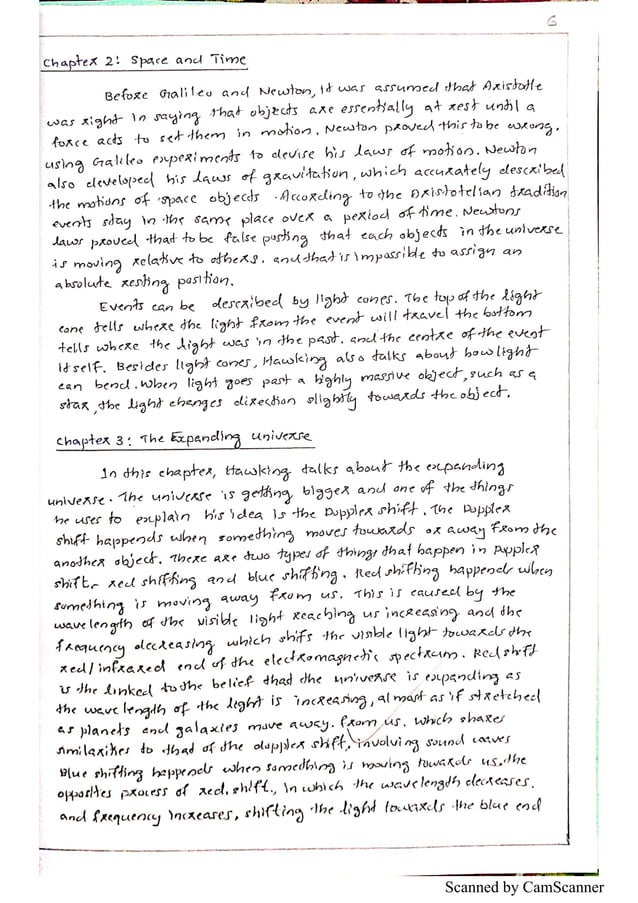 6
Chapter 2: Space and Time
Before Galileo and Newton, it was assumed that Aristotle
was right in saying that objects are essentially at rest until a
force acts to set them in motion. Newton proved this to be wrong.
using Galileo experiments to devise his laws of motion. Newton
also developed his laws of gravitation, which accurately described
the motions of space objects. According to the Aristotelian tradition
events stay in the same place over a period of time. Newtons
laws proved that to be false pusting that each objects in the universe
is moving relative to others. and that is impossible to assign an
absolute resting position.
Events can be described by light cones. The top of the light
cone tells where the light from the event will travel the bottom
tells where the light was in the past. and the centre of the event
itself. Besides light cones, Hawking also talks about how light
can bend. When light goes past a highly massive object, such as a
star, the light changes direction slightly towards the object.
Chapter 3: The Expanding Universe
In this chapter, Hawking talks about the expanding
universe. The universe is getting bigger and one of the things
he uses to explain his idea is the Doppler shift. The Doppler
shift happends when something moves towards or away from the
another object. There are two types of things that happen in Doppler
shift. red shifting and blue shifting. Red shifting happends when
something is moving away from us. This is caused by the
wave length of the visible light reaching us increasing and the
frequency decreasing which shifs the visible light towards the
red/infrared end of the electromagnetic spectrum. Red shift
is the linked to the belief that the universe is expanding as
the wave length of the light is increasing, almost as if stretched
as planets and galaxies move away. from us. which shares
similarities to that of the doppler shift, involving sound waves
Blue shifting happends when something is moving towards us. the
opposites process of red. shift., in which the wavelength decreases.
and frequency increases, shifting the light towards the blue end
Scanned by CamScanner